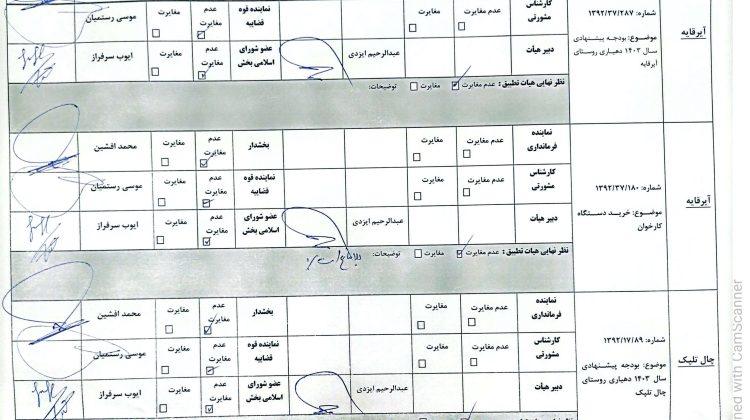 آبرقایه
شماره: ۱۳۹۲/۳۷/۲۸۷
موضوع: بودجه پیشنهادی
سال ۱۴۰۳ دهیاری روستای
آبرقایه
کارشناس
مشورتی
عدم مغایرت
مغایرت
نماینده قوه
قضاییه
عدم
مغایرت
مغایرت
موسی رستمیان
دبیر هیأت
عبدالرحیم ایزدی
عضو شورای
اسلامی بخش
عدم
مغایرت
مغایرت
ایوب سرفراز
نظر نهایی هیات تطبیق: عدم مغایرت مغایرت توضیحات:
آبرقایه
شماره: ۱۳۹۲/۳۷/۱۸۰
موضوع: خرید دستگاه
کارخوان
نماینده
فرمانداری
عدم مغایرت
مغایرت
بخشدار
عدم
مغایرت
مغایرت
محمد افشین
کارشناس
مشورتی
عدم مغایرت
مغایرت
نماینده قوه
قضاییه
عدم
مغایرت
مغایرت
موسی رستمیان
دبیر هیأت
عبدالرحیم ایزدی
عضو شورای
اسلامی بخش
عدم
مغایرت
مغایرت
ایوب سرفراز
نظر نهایی هیات تطبیق: عدم مغایرت مغایرت توضیحات:
چال تلپک
شماره: ۱۳۹۲/۱۷/۸۹
موضوع: بودجه پیشنهادی
سال ۱۴۰۳ دهیاری روستای
چال تلپک
نماینده
فرمانداری
عدم مغایرت
مغایرت
بخشدار
عدم
مغایرت
مغایرت
محمد افشین
کارشناس
مشورتی
عدم مغایرت
مغایرت
نماینده قوه
قضاییه
عدم
مغایرت
مغایرت
موسی رستمیان
دبیر هیأت
عبدالرحیم ایزدی
عضو شورای
اسلامی بخش
عدم
مغایرت
مغایرت
ایوب سرفراز
with CamScanner